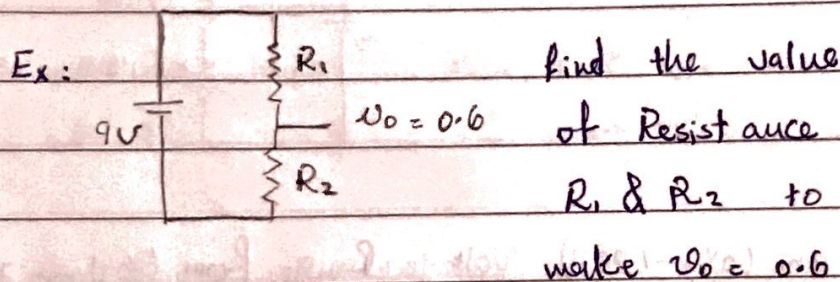 Ex:
9v
R₁
v₀ = 0.6
R₂
find the value
of Resistance
R₁ & R₂ to
make v₀ = 0.6